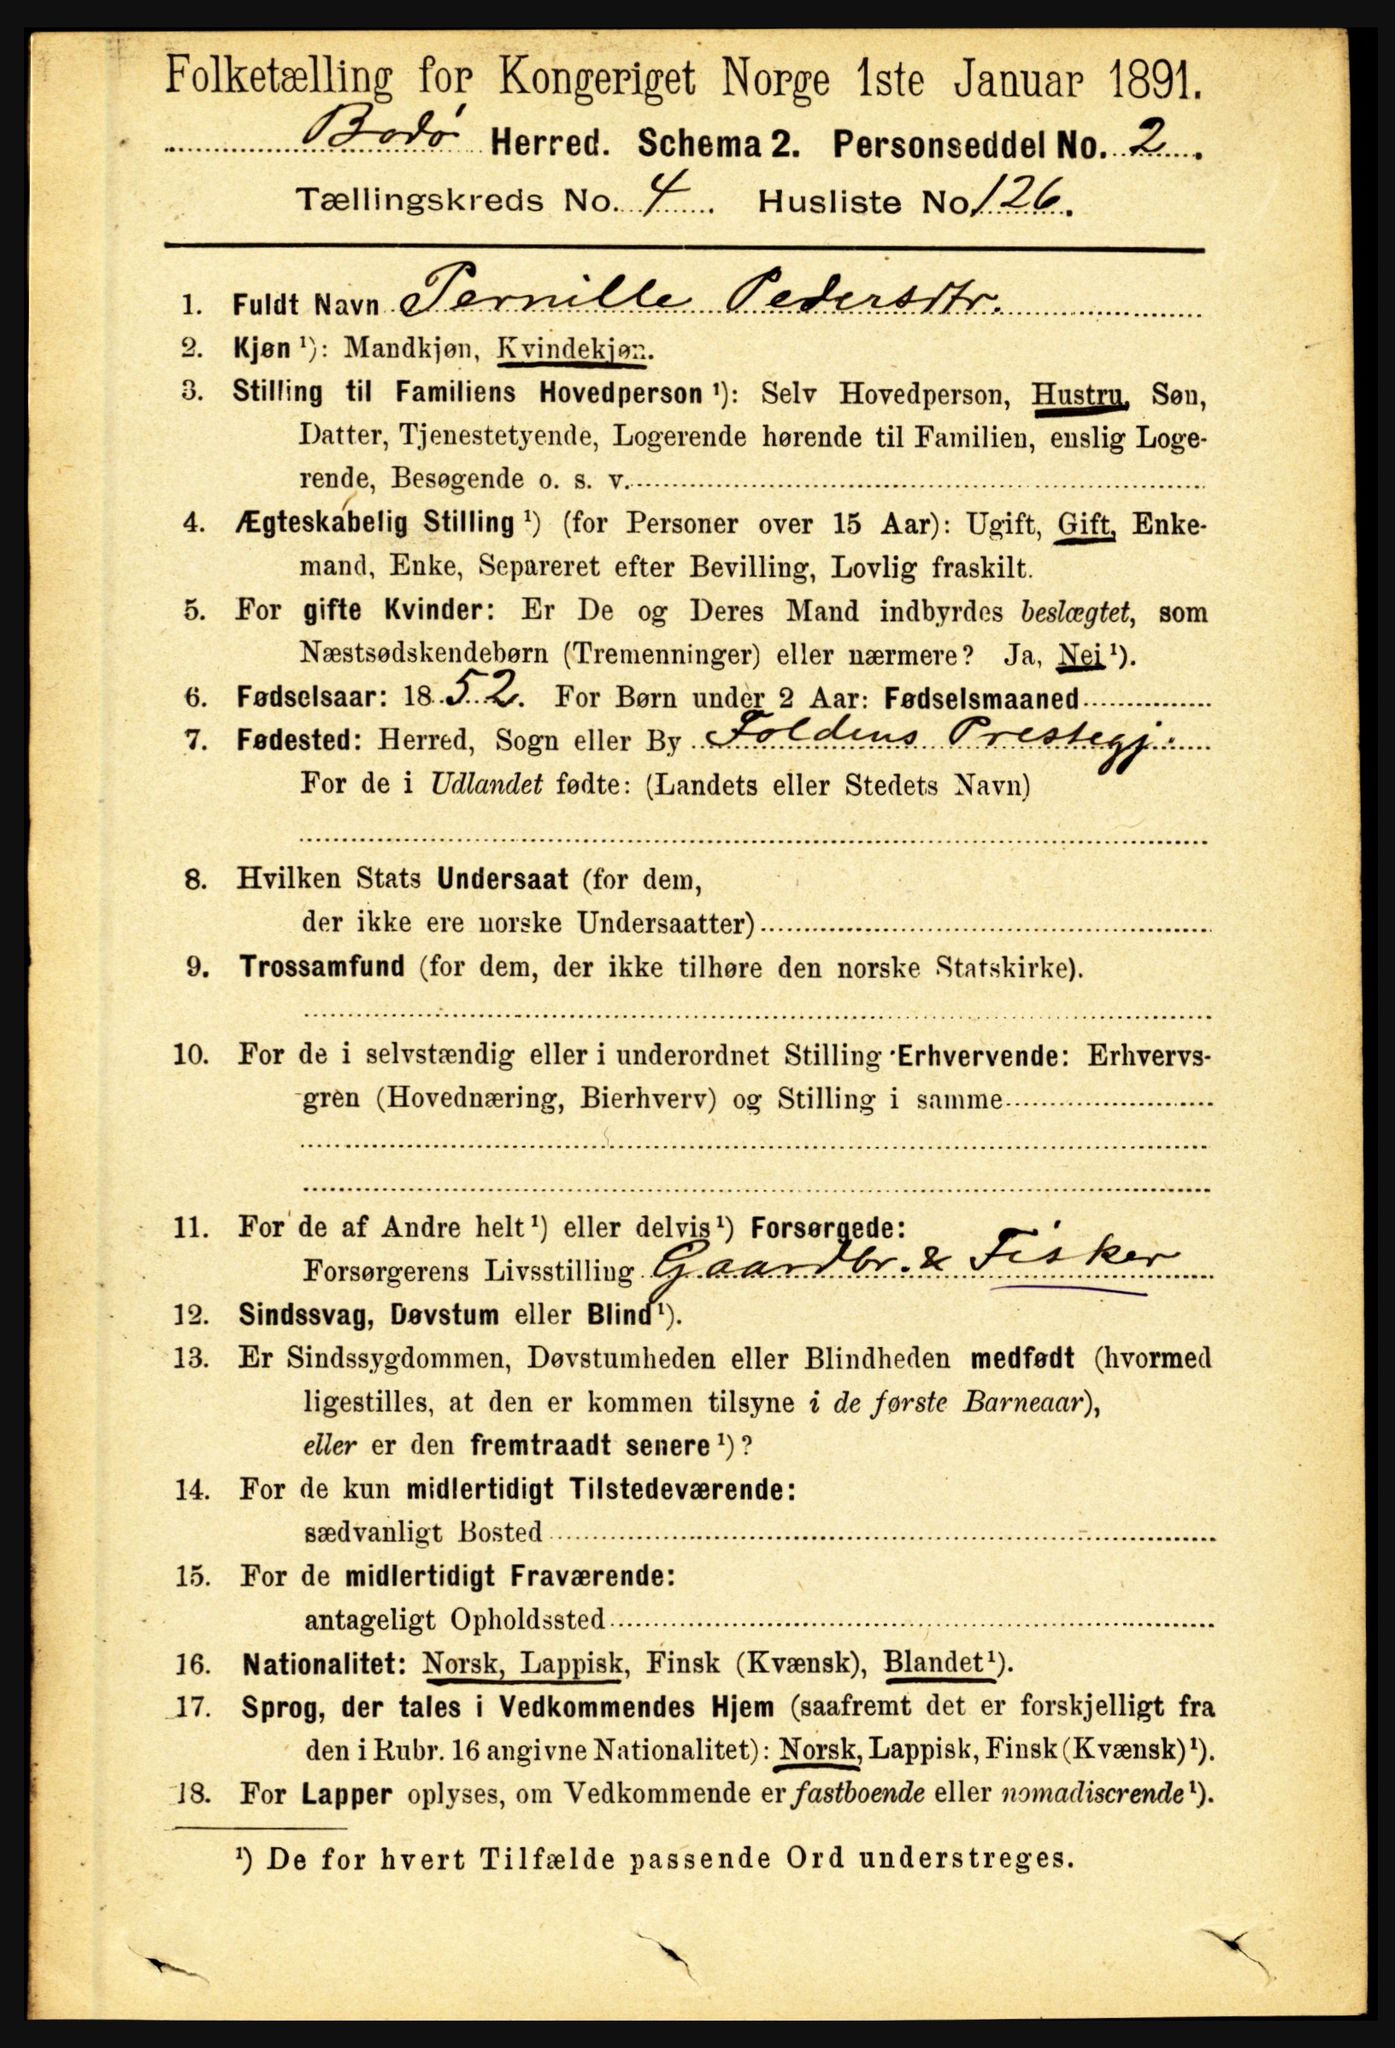 Folketælling for Kongeriget Norge 1ste Januar 1891.
Bodø Herred. Schema 2. Personseddel No. 2.
Tællingskreds No. 4. Husliste No 126.
1. Fuldt Navn Pernille Pedersdtr.
2. Kjøn ¹): Mandkjøn, Kvindekjøn.
3. Stilling til Familiens Hovedperson ¹): Selv Hovedperson, Hustru, Søn,
Datter, Tjenestetyende, Logerende hørende til Familien, enslig Loge-
rende, Besøgende o. s. v.
4. Ægteskabelig Stilling ¹) (for Personer over 15 Aar): Ugift, Gift, Enke-
mand, Enke, Separeret efter Bevilling, Lovlig fraskilt.
5. For gifte Kvinder: Er De og Deres Mand indbyrdes beslægtet, som
Næstsødskendebørn (Tremenninger) eller nærmere? Ja, Nei ¹).
6. Fødselsaar: 1852. For Børn under 2 Aar: Fødselsmaaned
7. Fødested: Herred, Sogn eller By Foldens Prestegj.
For de i Udlandet fødte: (Landets eller Stedets Navn)
8. Hvilken Stats Undersaat (for dem,
der ikke ere norske Undersaatter)
9. Trossamfund (for dem, der ikke tilhøre den norske Statskirke).
10. For de i selvstændig eller i underordnet Stilling Erhvervende: Erhvervs-
gren (Hovednæring, Bierhverv) og Stilling i samme
11. For de af Andre helt ¹) eller delvis ¹) Forsørgede:
Forsørgerens Livsstilling Gaardbr. & Fisker
12. Sindssvag, Døvstum eller Blind ¹).
13. Er Sindssygdommen, Døvstumheden eller Blindheden medfødt (hvormed
ligestilles, at den er kommen tilsyne i de første Barneaar),
eller er den fremtraadt senere ¹)?
14. For de kun midlertidigt Tilstedeværende:
sædvanligt Bosted
15. For de midlertidigt Fraværende:
antageligt Opholdssted
16. Nationalitet: Norsk, Lappisk, Finsk (Kvænsk), Blandet ¹).
17. Sprog, der tales i Vedkommendes Hjem (saafremt det er forskjelligt fra
den i Rubr. 16 angivne Nationalitet): Norsk, Lappisk, Finsk (Kvænsk) ¹).
18. For Lapper oplyses, om Vedkommende er fastboende eller nomadiserende ¹).
¹) De for hvert Tilfælde passende Ord understreges.